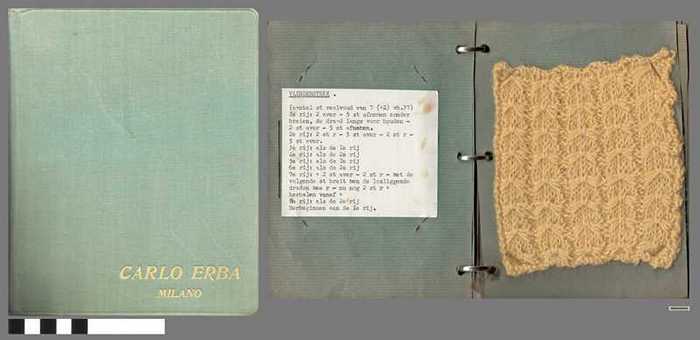 CARLO ERBA
MILANO
VLINDERSTEEK .
(aantal st veelvoud van 7 (+2) vb.37)
1e rij: 2 over - 5 st afnemen zonder
breien, de draad langs voor houden -
2 st over - 5 st afnemen.
2e rij: 2 st r - 5 st over - 2 st r -
5 st over.
3e rij: als de 1e rij
4e rij: als de 2e rij
5e rij: als de 1e rij
6e rij: als de 2e rij
7e rij: + 2 st over - 2 st r - met de
volgende st breit men de losliggende
draden mee r - nu nog 2 st r +
herhalen vanaf +
8e rij: als de 2e rij
Herbeginnen aan de 1e rij.